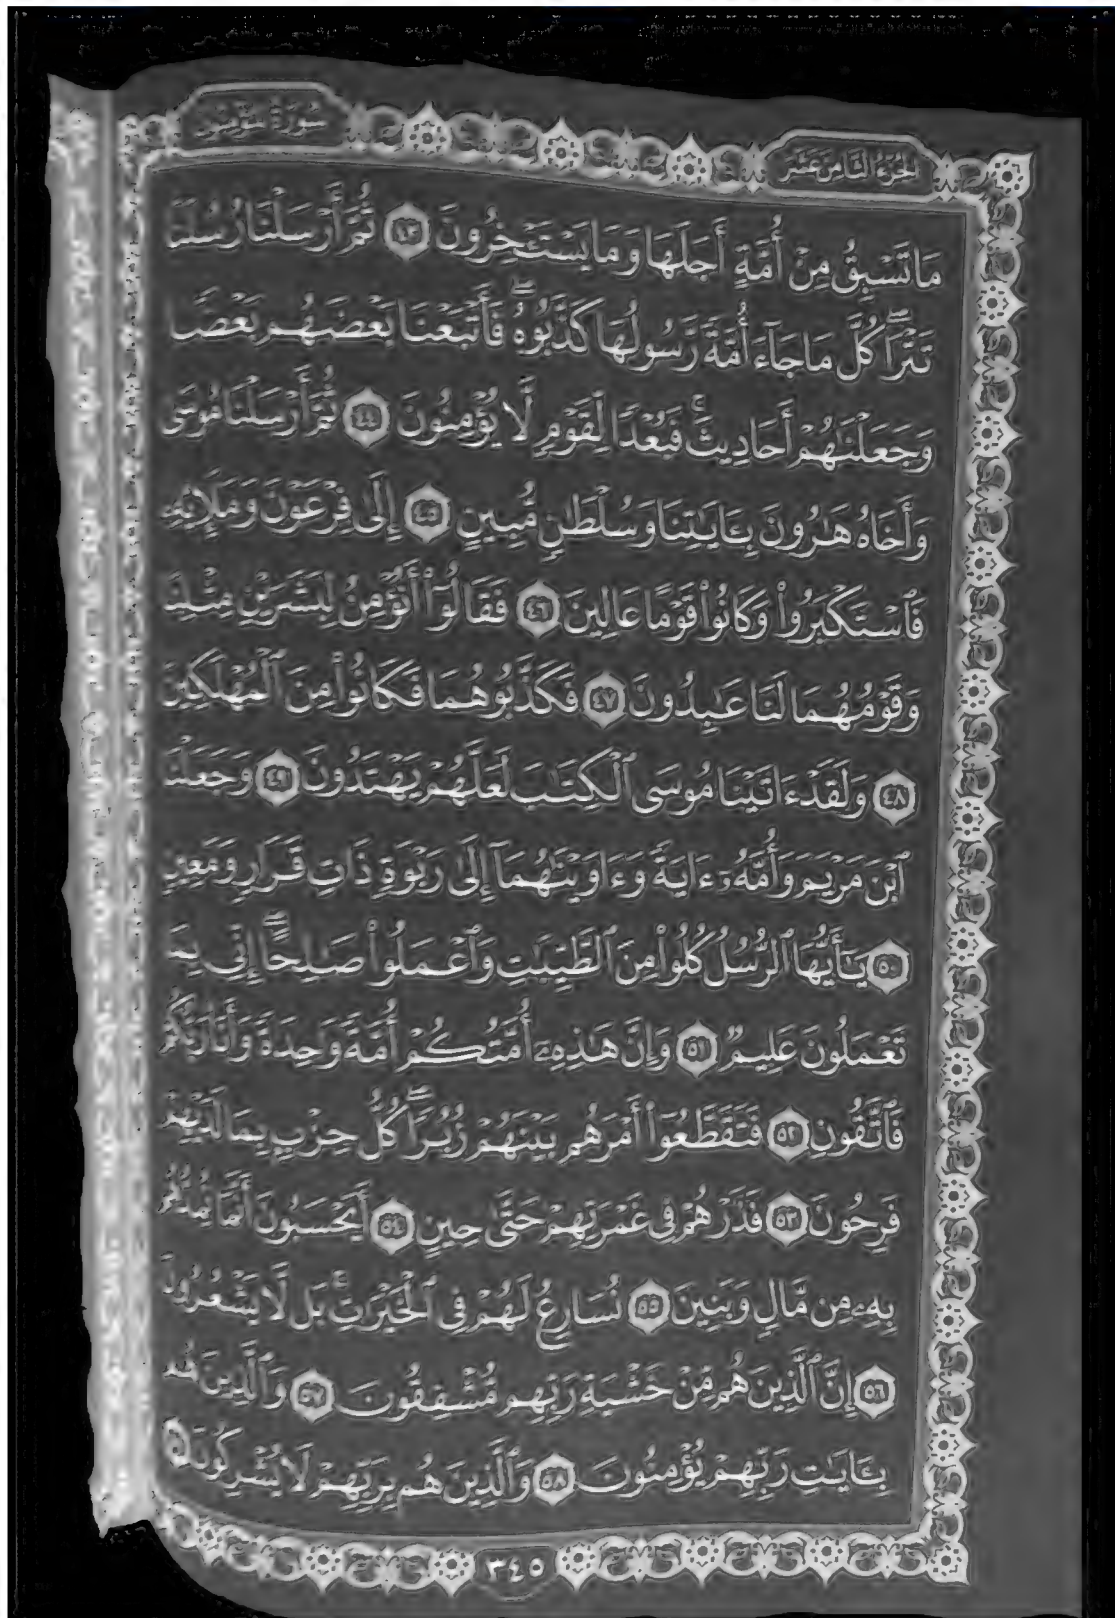 الجزء الثامن عشر
سورة المؤمنون
مَا تَسْبِقُ مِنْ أُمَّةٍ أَجَلَهَا وَمَا يَسْتَـْٔخِرُونَ ٤٣ ثُمَّ أَرْسَلْنَا رُسُلَنَا
تَتْرَاۖ كُلَّ مَا جَآءَ أُمَّةً رَّسُولُهَا كَذَّبُوهُۖ فَأَتْبَعْنَا بَعْضَهُم بَعْضًا
وَجَعَلْنَٰهُمْ أَحَادِيثَۚ فَبُعْدًا لِّقَوْمٍ لَّا يُؤْمِنُونَ ٤٤ ثُمَّ أَرْسَلْنَا مُوسَىٰ
وَأَخَاهُ هَٰرُونَ بِـَٔايَٰتِنَا وَسُلْطَٰنٍ مُّبِينٍ ٤٥ إِلَىٰ فِرْعَوْنَ وَمَلَإِيْهِۦ
فَٱسْتَكْبَرُوا۟ وَكَانُوا۟ قَوْمًا عَالِينَ ٤٦ فَقَالُوٓا۟ أَنُؤْمِنُ لِبَشَرَيْنِ مِثْلِنَا
وَقَوْمُهُمَا لَنَا عَٰبِدُونَ ٤٧ فَكَذَّبُوهُمَا فَكَانُوا۟ مِنَ ٱلْمُهْلَكِينَ
٤٨ وَلَقَدْ ءَاتَيْنَا مُوسَى ٱلْكِتَٰبَ لَعَلَّهُمْ يَهْتَدُونَ ٤٩ وَجَعَلْنَا
ٱبْنَ مَرْيَمَ وَأُمَّهُۥٓ ءَايَةً وَءَاوَيْنَٰهُمَآ إِلَىٰ رَبْوَةٍ ذَاتِ قَرَارٍ وَمَعِينٍ
٥٠ يَٰٓأَيُّهَا ٱلرُّسُلُ كُلُوا۟ مِنَ ٱلطَّيِّبَٰتِ وَٱعْمَلُوا۟ صَٰلِحًاۖ إِنِّى بِمَا
تَعْمَلُونَ عَلِيمٌ ٥١ وَإِنَّ هَٰذِهِۦٓ أُمَّتُكُمْ أُمَّةً وَٰحِدَةً وَأَنَا۠ رَبُّكُمْ
فَٱتَّقُونِ ٥٢ فَتَقَطَّعُوٓا۟ أَمْرَهُم بَيْنَهُمْ زُبُرًاۖ كُلُّ حِزْبٍۭ بِمَا لَدَيْهِمْ
فَرِحُونَ ٥٣ فَذَرْهُمْ فِى غَمْرَتِهِمْ حَتَّىٰ حِينٍ ٥٤ أَيَحْسَبُونَ أَنَّمَا نُمِدُّهُم
بِهِۦ مِن مَّالٍ وَبَنِينَ ٥٥ نُسَارِعُ لَهُمْ فِى ٱلْخَيْرَٰتِۚ بَل لَّا يَشْعُرُونَ
٥٦ إِنَّ ٱلَّذِينَ هُم مِّنْ خَشْيَةِ رَبِّهِم مُّشْفِقُونَ ٥٧ وَٱلَّذِينَ هُم
بِـَٔايَٰتِ رَبِّهِمْ يُؤْمِنُونَ ٥٨ وَٱلَّذِينَ هُم بِرَبِّهِمْ لَا يُشْرِكُونَ
٣٤٥